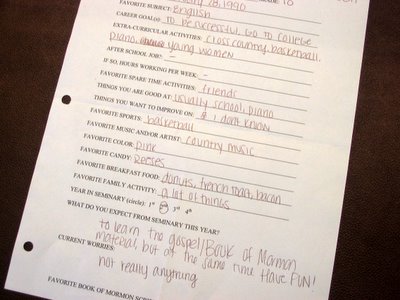 28, 1990
10
FAVORITE SUBJECT: English
CAREER GOALS: To be successful, go to college
EXTRA-CURRICULAR ACTIVITIES: cross country, basketball,
piano, young women
AFTER SCHOOL JOB?: -
IF SO, HOURS WORKING PER WEEK: -
FAVORITE SPARE TIME ACTIVITIES: friends
THINGS YOU ARE GOOD AT: usually school, piano
THINGS YOU WANT TO IMPROVE ON: I don't know
FAVORITE SPORTS: basketball
FAVORITE MUSIC AND/OR ARTIST: country music
FAVORITE COLOR: pink
FAVORITE CANDY: Reeses
FAVORITE BREAKFAST FOOD: donuts, french toast, bacon
FAVORITE FAMILY ACTIVITY: a lot of things
YEAR IN SEMINARY (circle): 1st 2nd 3rd 4th
WHAT DO YOU EXPECT FROM SEMINARY THIS YEAR?
to learn the gospel/Book of Mormon
material, but at the same time Have FUN!
CURRENT WORRIES: not really anything
FAVORITE BOOK OF MORMON